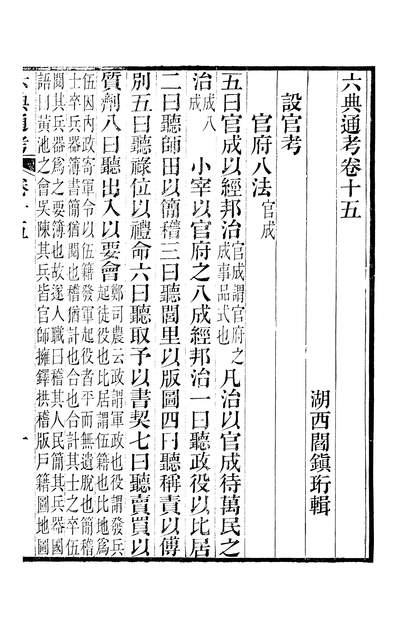 六典通考卷十五
湖西閻鎭珩輯
設官考
官府八法官成
五曰官成以經邦治官成謂官府之成事品式也凡治以官成待萬民之
治成八成小宰以官府之八成經邦治一曰聽政役以比居
二曰聽師田以簡稽三曰聽閭里以版圖四曰聽稱責以傅
別五曰聽祿位以禮命六曰聽取予以書契七曰聽賣買以
質劑八曰聽出入以要會鄭司農云政謂軍政也役謂發兵起徒役也比居謂伍籍也比地爲
伍因內政寄軍令以伍籍發軍起役者平而無遺脫也簡稽士卒兵器簿書簡猶閱也稽猶計也合也合計其士之卒伍
閱其兵器爲之要簿也故遂人職曰稽其人民簡其兵器國語曰黃池之會吳陳其兵皆官師擁鐸拱稽版戶籍圖地圖
六典通考
卷十五
一